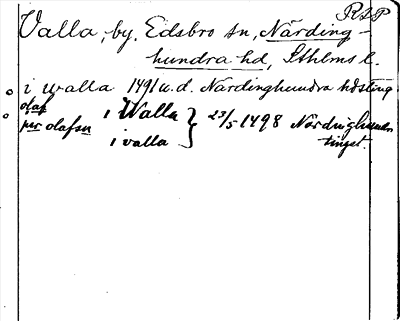 RAP
Valla, by, Edsbro sn, Närding-
hundra hd, Sthlms l.
i walla 1491 u.d. Närdinghundra hdsting
olaf i Walla
per olafsn i valla } 23/5 1498 Närdinghundra
tinget.